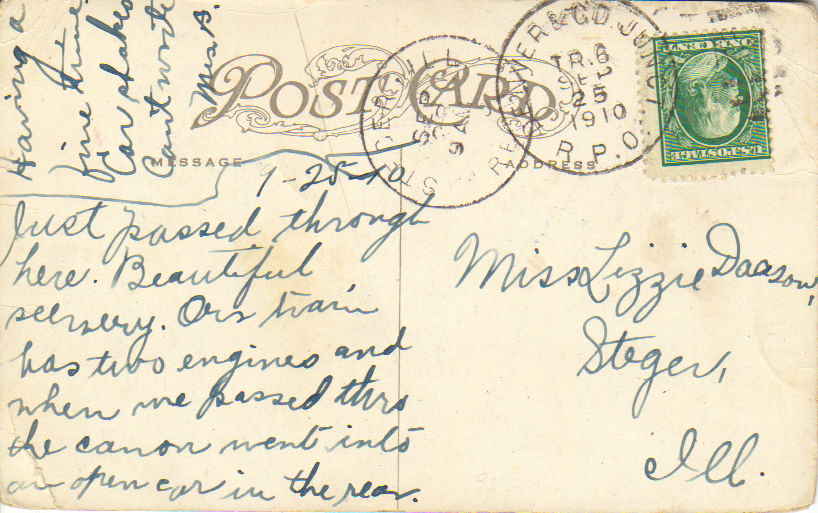 Having a
fine time.
Car shakes
Cant write
Mrs B.
POST CARD
MESSAGE
ADDRESS
TR. 6
SEP
25
1910
R.P.O.
SEP
9 AM
U.S. POSTAGE
ONE CENT
9-25-10
Just passed through
here. Beautiful
scenery. Our train
has two engines and
when we passed thro
the canon went into
an open car in the rear.
Miss Lizzie
Steger,
Ill.